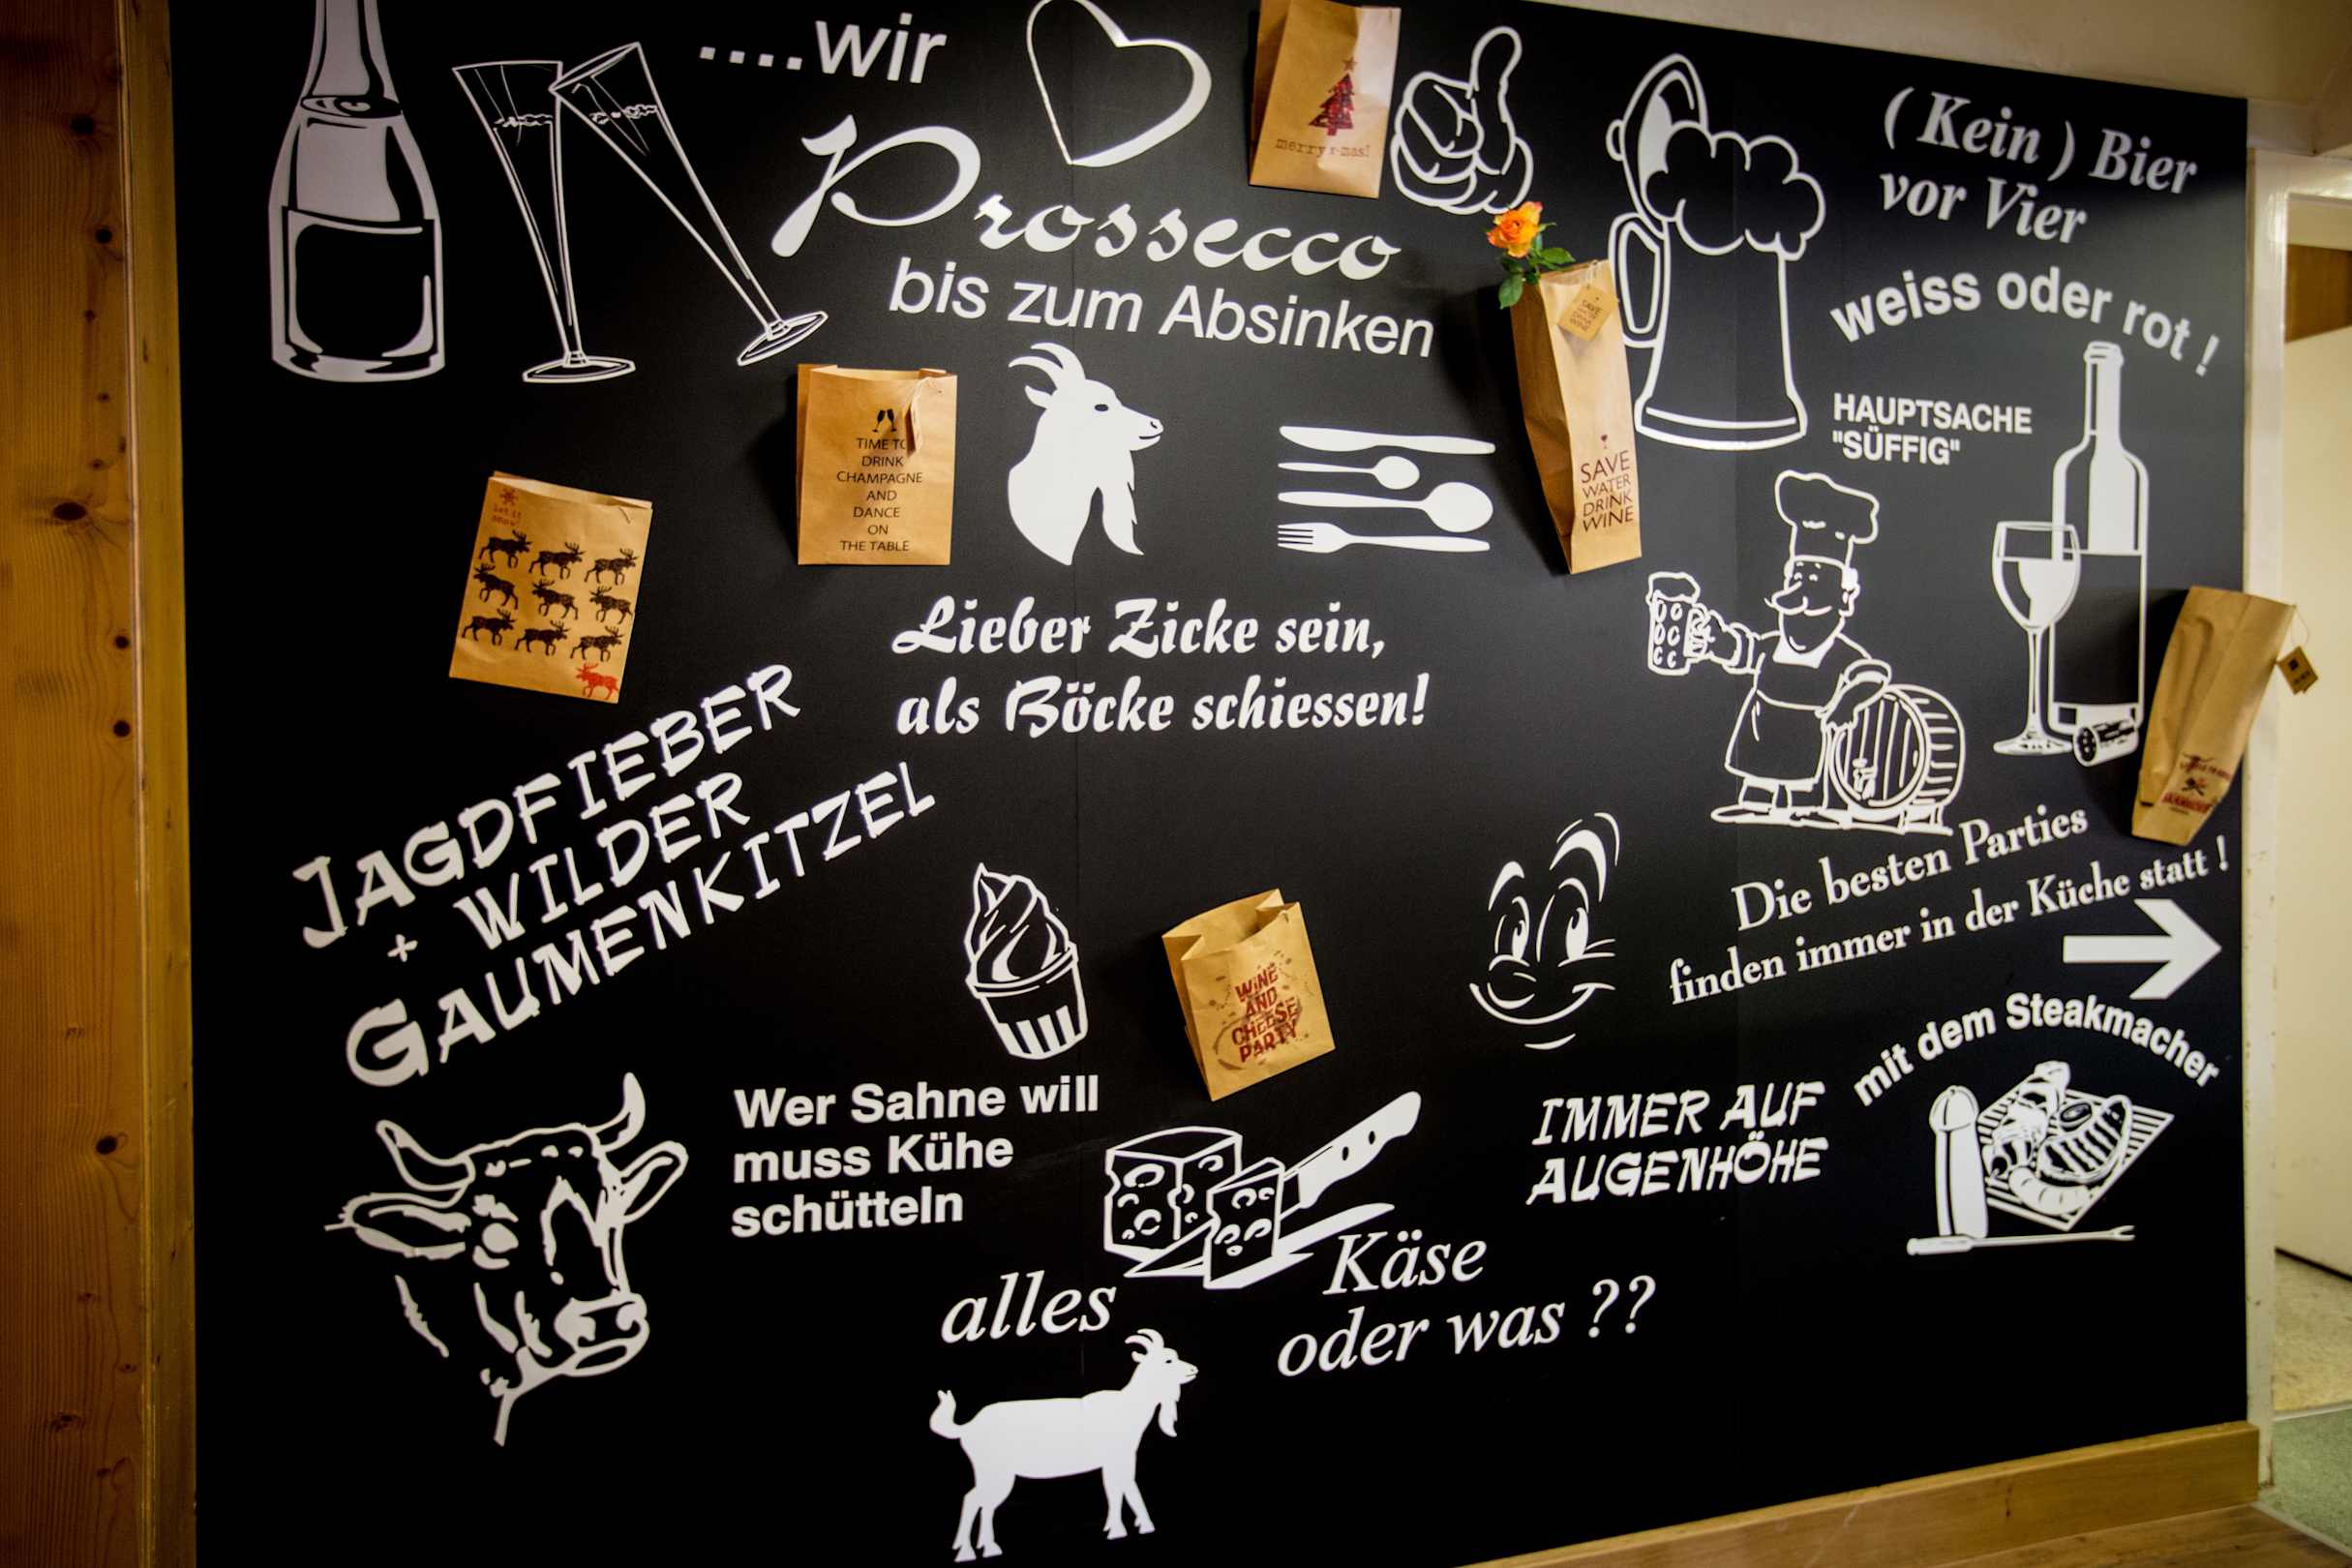 ....wir
Prossecco
bis zum Absinken
merry x-mas!
( Kein ) Bier
vor Vier
weiss oder rot !
HAUPTSACHE
"SÜFFIG"
TIME TO
DRINK
CHAMPAGNE
AND
DANCE
ON
THE TABLE
let it
snow!
SAVE
WATER
DRINK
WINE
SAVE
WATER
DRINK
WINE
Lieber Zicke sein,
als Böcke schiessen!
JAGDFIEBER
+ WILDER
GAUMENKITZEL
Die besten Parties
finden immer in der Küche statt !
WINE
AND
CHEESE
PARTY
mit dem Steakmacher
IMMER AUF
AUGENHÖHE
Wer Sahne will
muss Kühe
schütteln
alles
Käse
oder was ??